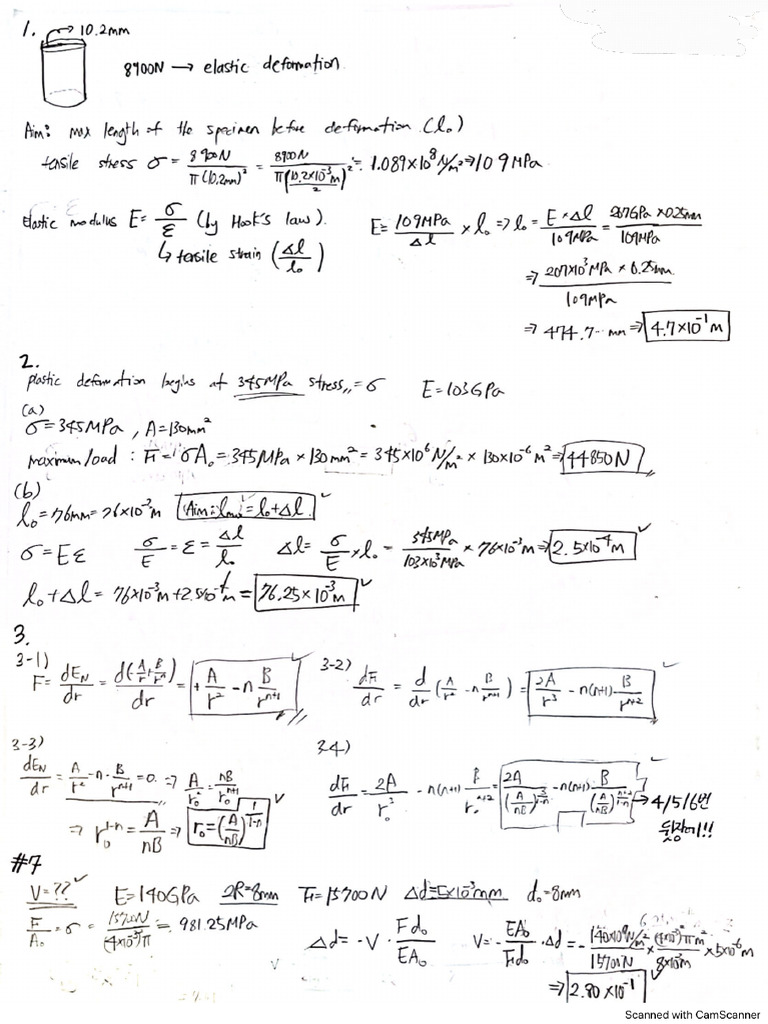 1. 10.2mm
8900N → elastic deformation
Aim: max length of the specimen before deformation (l₀)
tensile stress σ = 8900N / π(10.2mm)² = 8900N / π(10.2×10⁻³m / 2)² = 1.089×10⁸ N/m² ⇒ 109MPa
Elastic modulus E = σ/ε (by Hook's law).
↳ tensile strain (Δl/l₀)
E = 109MPa/Δl × l₀ ⇒ l₀ = E×Δl / 109MPa = 207GPa × 0.25mm / 109MPa
⇒ 207×10³MPa × 0.25mm / 109MPa
⇒ 474.7… mm ⇒ 4.7×10⁻¹m
2.
plastic deformation begins at 345MPa stress = σ E = 103GPa
(a)
σ = 345MPa, A = 130mm²
maximum load : F = σA₀ = 345MPa × 130mm² = 345×10⁶ N/m² × 130×10⁻⁶ m² ⇒ 44850N
(b)
l₀ = 76mm = 76×10⁻³m Aim : = l₀+Δl
σ = Eε σ/E = ε = Δl/l₀ Δl = σ/E × l₀ = 345MPa / 103×10³MPa × 76×10⁻³m ⇒ 2.5×10⁻⁴m
l₀+Δl = 76×10⁻³m + 2.5×10⁻⁴m = 76.25×10⁻³m
3.
3-1) F = dE_N/dr = d(-A/r + B/rⁿ)/dr = +A/r² - n B/rⁿ⁺¹
3-2) dF/dr = d/dr (A/r² - n B/rⁿ⁺¹) = 2A/r³ - n(n+1) B/rⁿ⁺²
3-3)
dE_N/dr = A/r² - n · B/rⁿ⁺¹ = 0. ⇒ A/r₀² = nB/r₀ⁿ⁺¹
⇒ r₀¹⁻ⁿ = A/nB ⇒ r₀ = (A/nB)^(1/(1-n))
3-4)
dF/dr = 2A/r₀³ - n(n+1) B/r₀ⁿ⁺² = 2A/(A/nB)^(3/(1-n)) - n(n+1) B/(A/nB)^((n+2)/(1-n)) → 4/5/6번
뒷장이!!
#7
V = ?? E = 140GPa 2R = 8mm F = 15700N Δd = 5×10⁻³mm d₀ = 8mm
F/A₀ = σ = 15700N / (4×10⁻³)²π = 981.25MPa
Δd = -V · Fd₀/EA₀ V = -EA₀/Fd₀ · Δd = - 140×10⁹N/m² / 15700N × (4×10⁻³)²πm² / 8×10⁻³m × 5×10⁻⁶m
⇒ 2.80×10⁻¹
Scanned with CamScanner